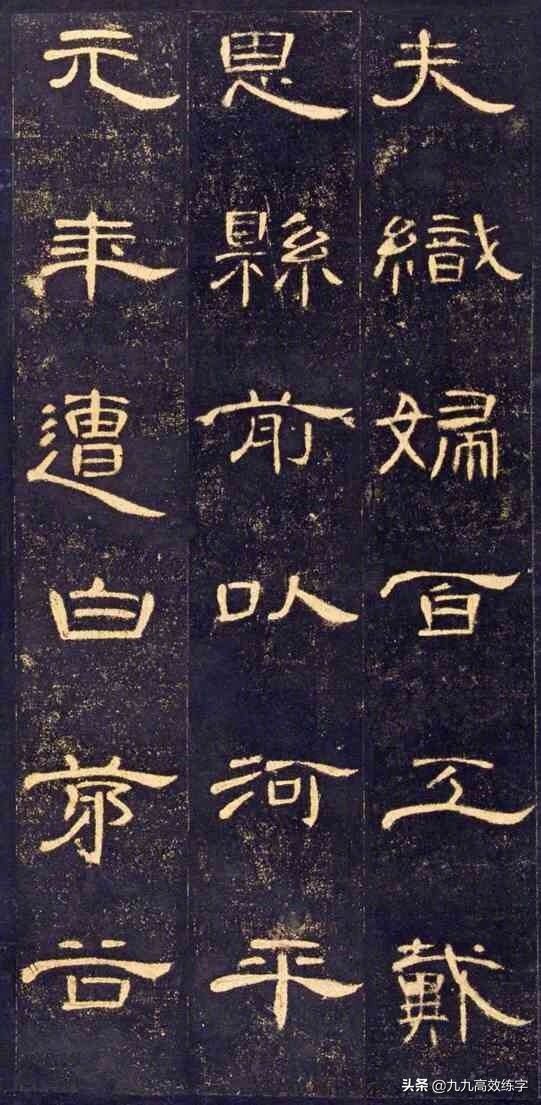 夫織婦百工戴
恩縣前以河平
元年遭白茅谷
头条 @九九高效练字